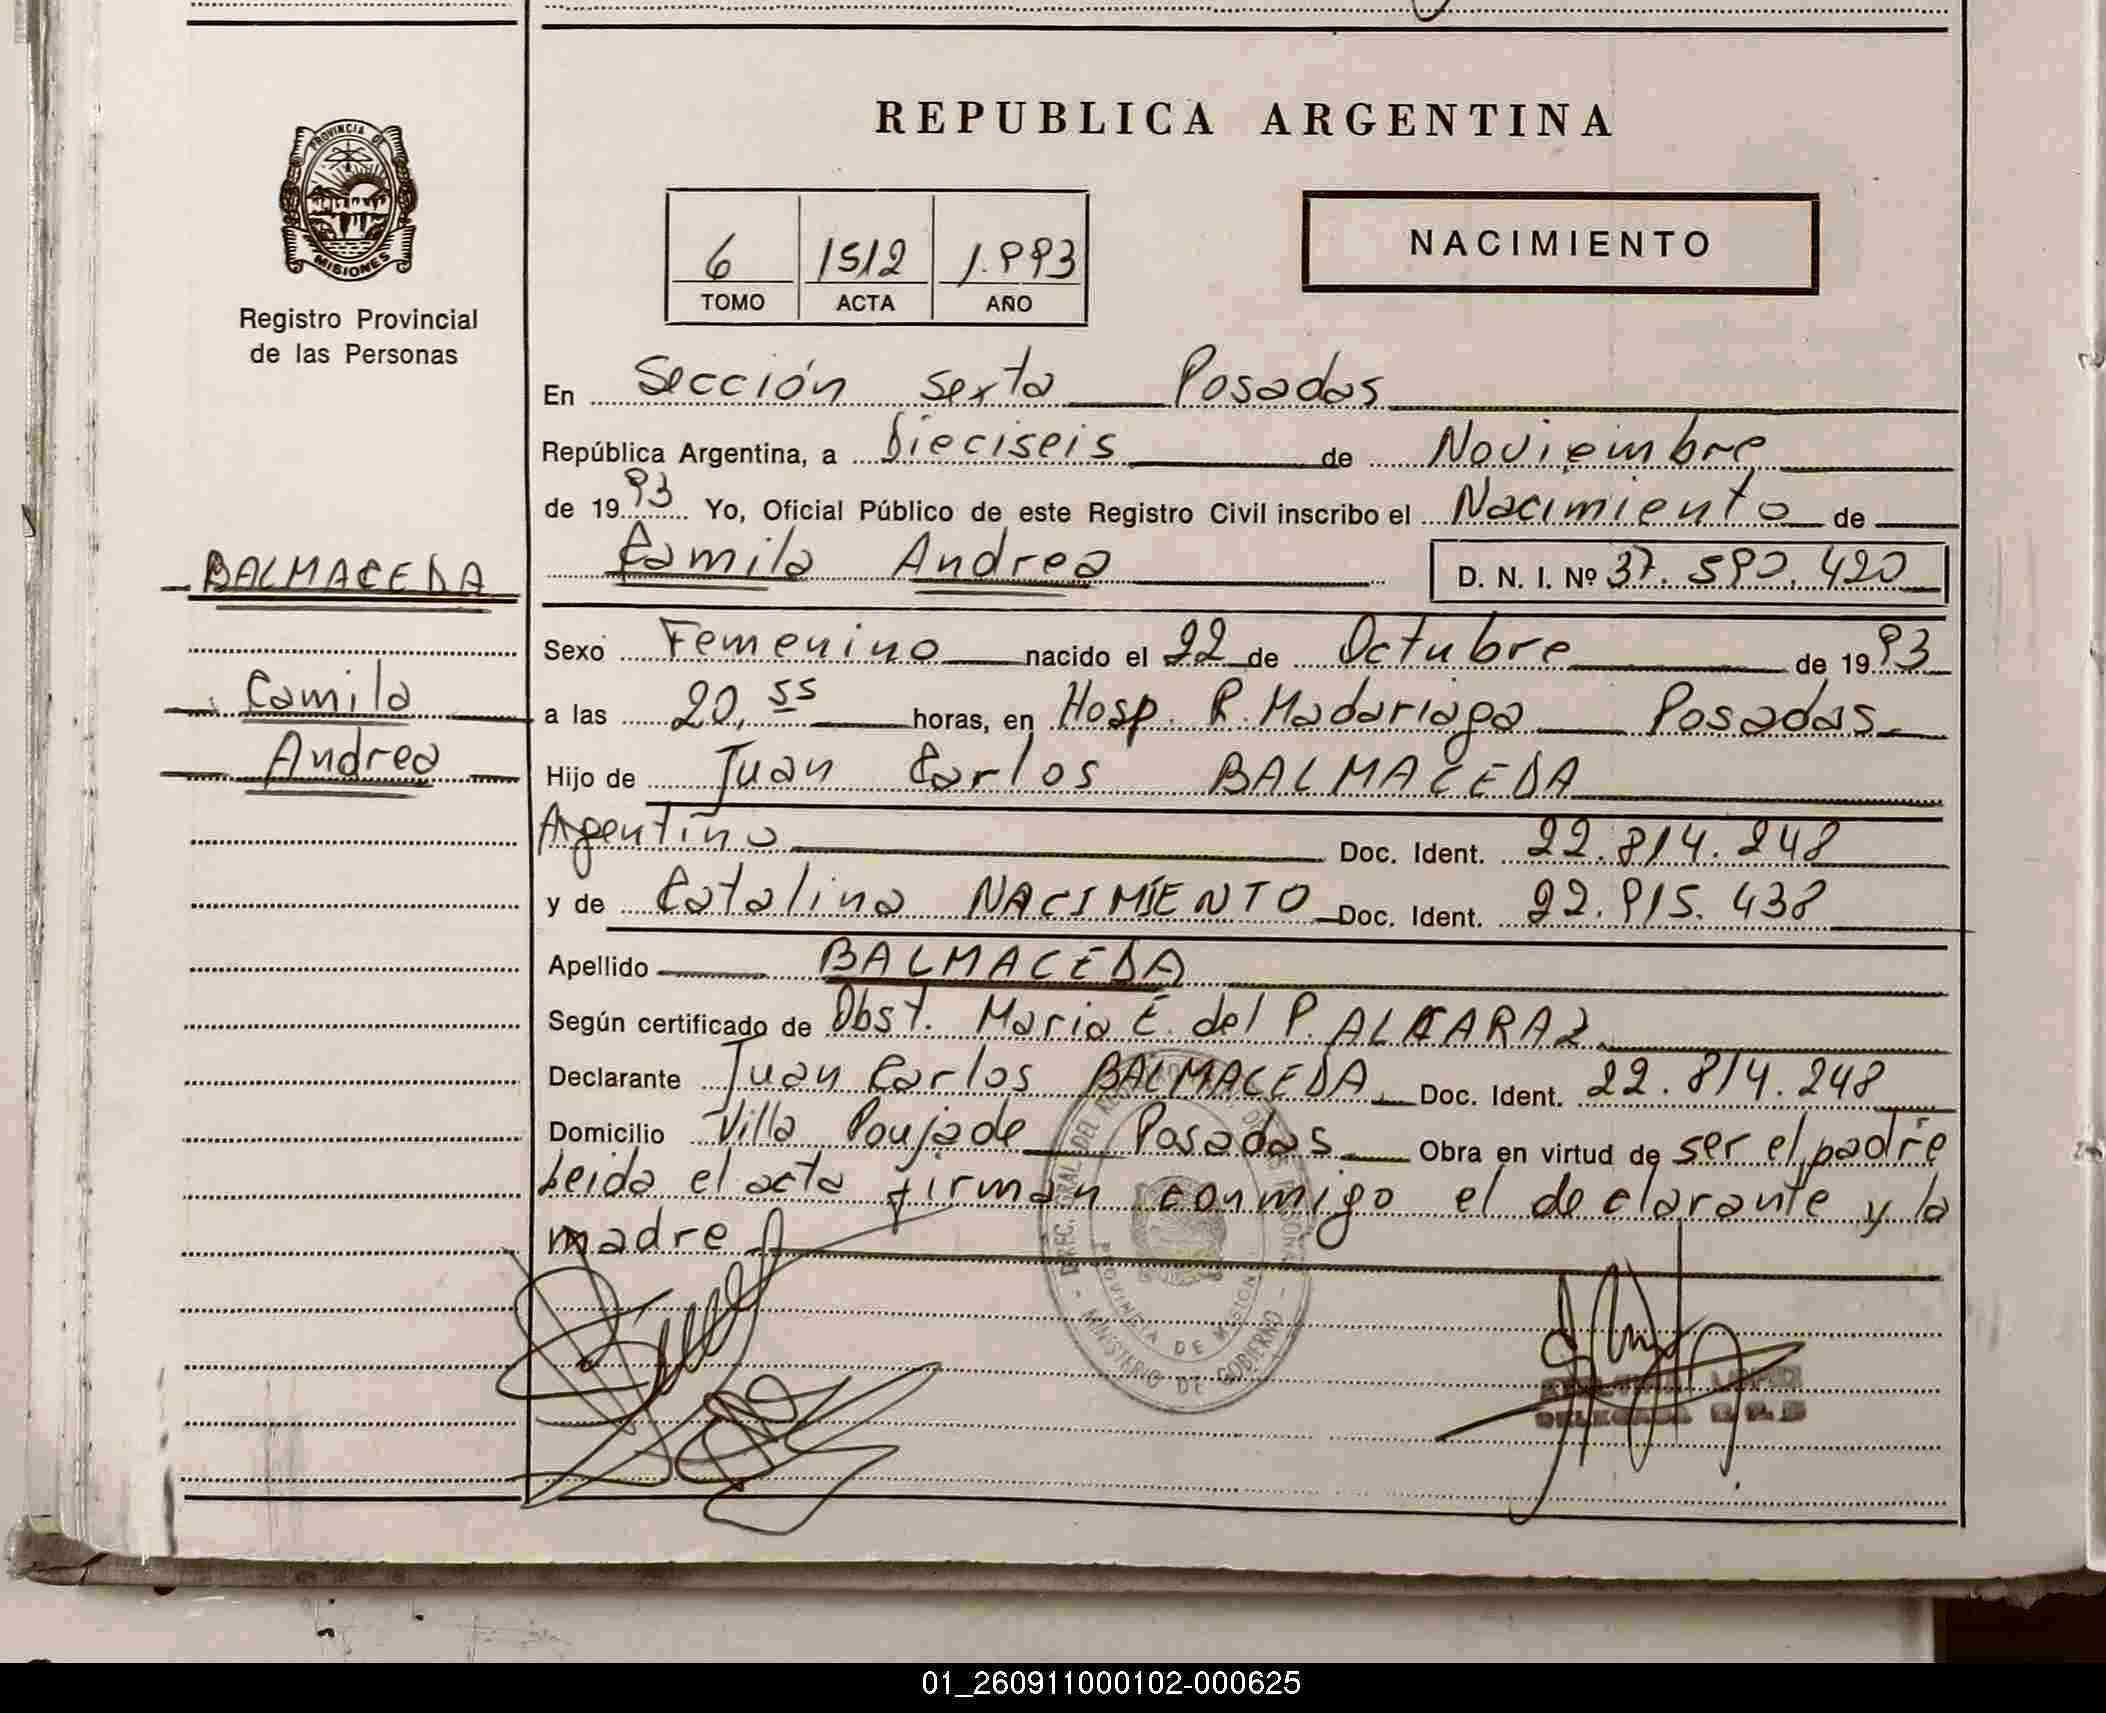 REPUBLICA ARGENTINA
PROVINCIA DE
MISIONES
Registro Provincial
de las Personas
6 1512 1.993
TOMO ACTA AÑO
NACIMIENTO
En Sección Sexta Posadas
República Argentina, a Dieciseis de Noviembre
de 1993 Yo, Oficial Público de este Registro Civil inscribo el Nacimiento de
Camila Andrea D. N. I. Nº 37.590.420
BALMACEDA
Camila
Andrea
Sexo Femenino nacido el 22 de Octubre de 1993
a las 20,55 horas, en Hosp. R. Madariaga Posadas
Hijo de Juan Carlos BALMACEDA
Argentino Doc. Ident. 22.814.248
y de Catalina NACIMIENTO Doc. Ident. 22.915.438
Apellido BALMACEDA
Según certificado de Obst. Maria E. del P. ALCARAZ
Declarante Juan Carlos BALMACEDA Doc. Ident. 22.814.248
Domicilio Villa Poujade Posadas Obra en virtud de ser el padre
Leida el acta firman conmigo el declarante y la
madre
PROVINCIA DE MISIONES
MINISTERIO DE GOBIERNO
01_260911000102-000625